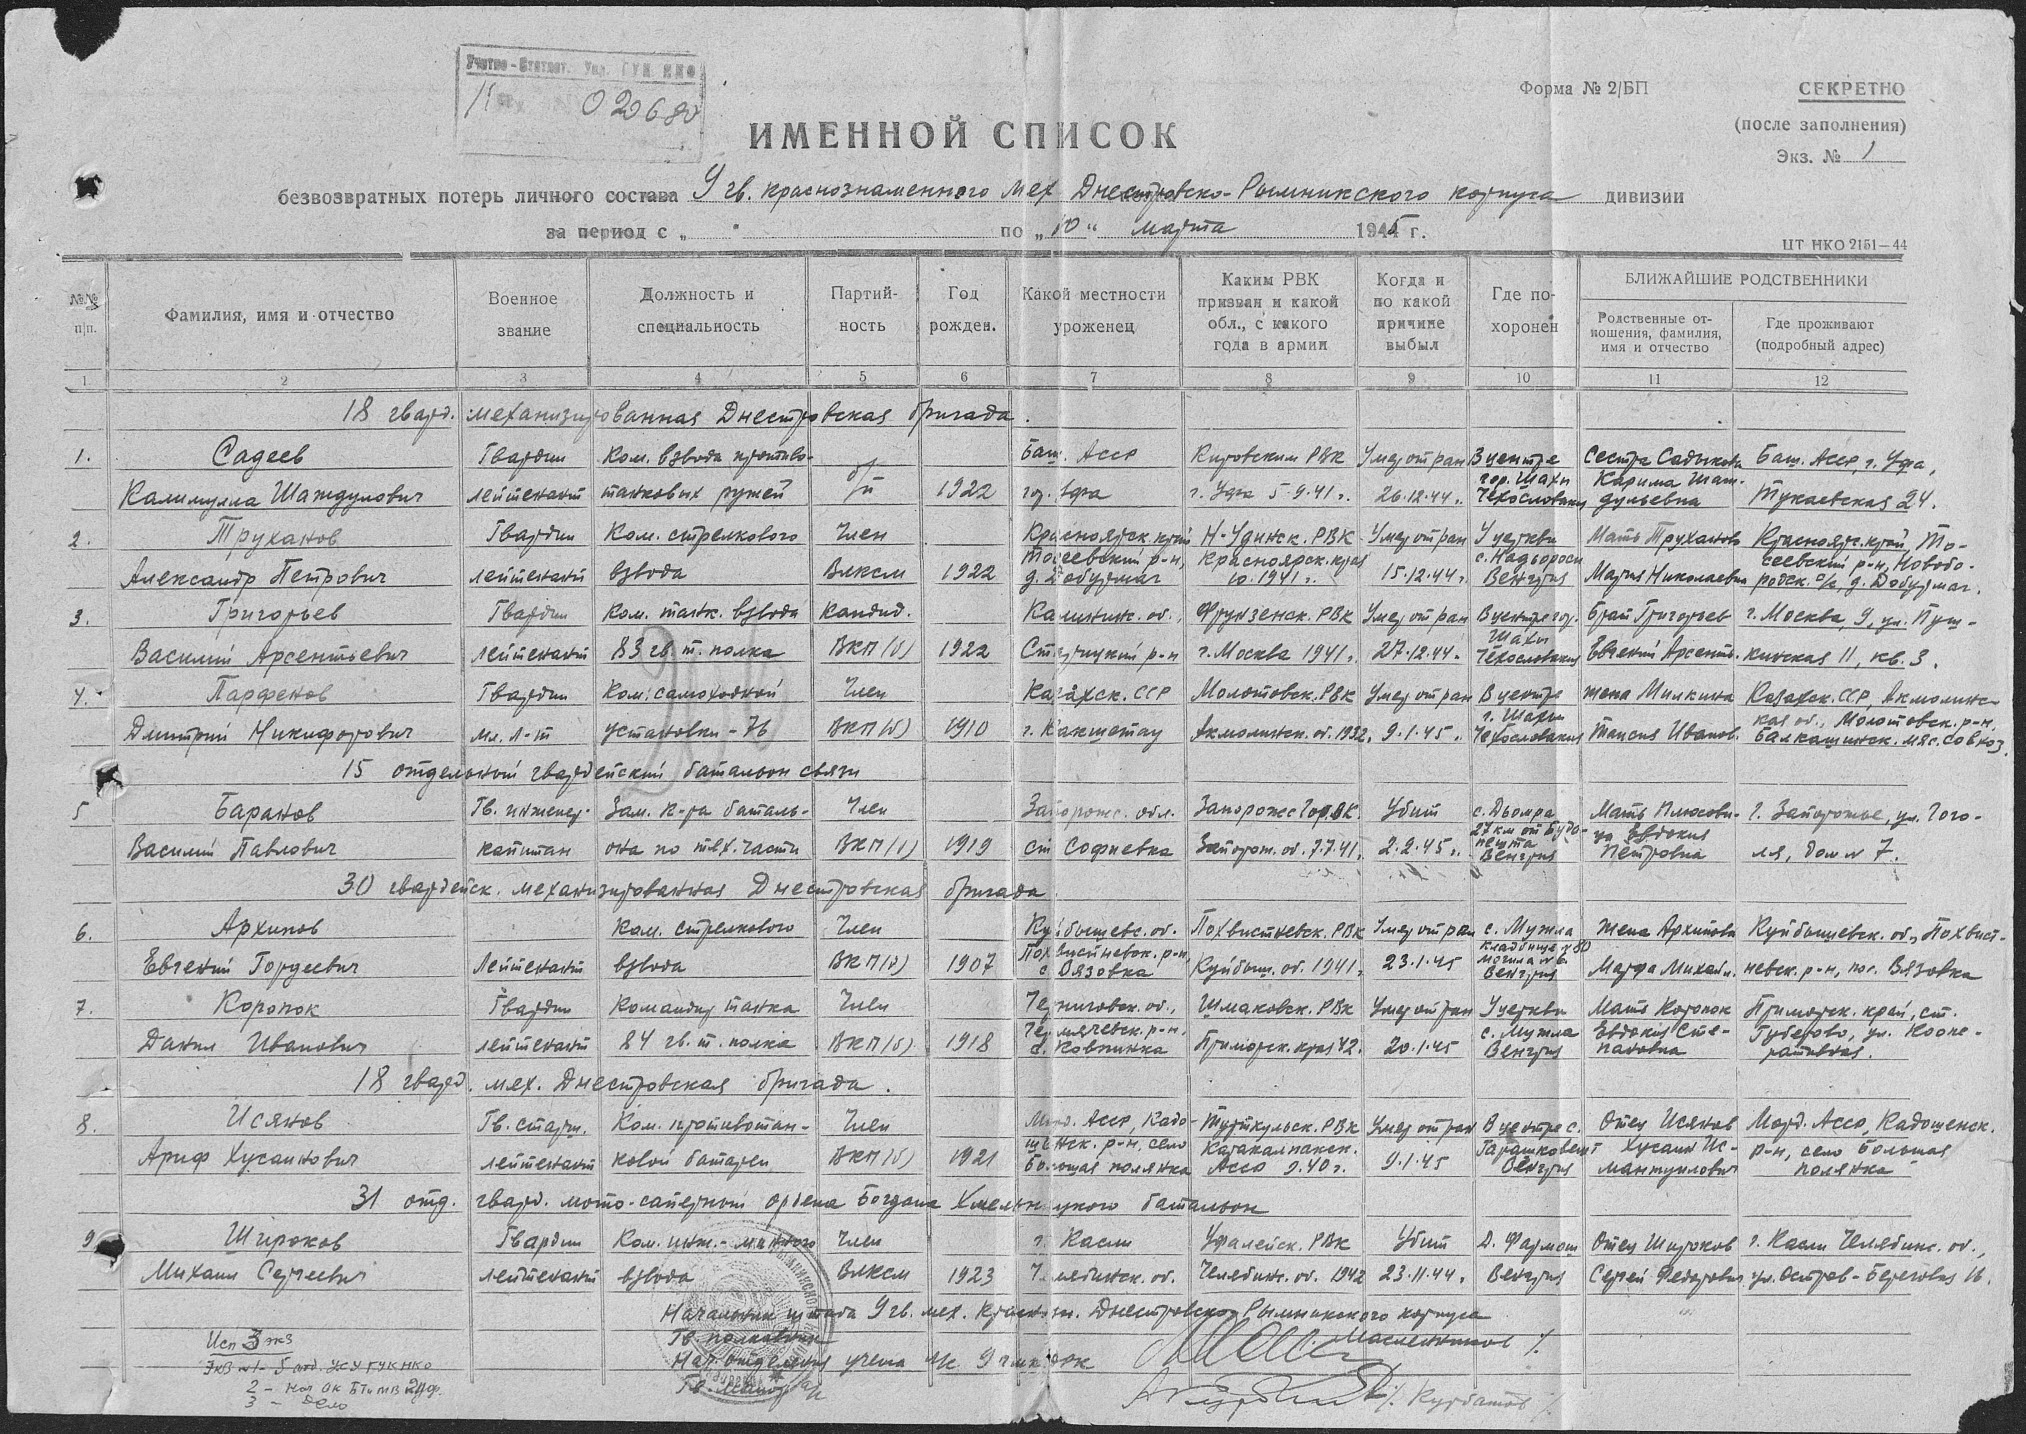 Учетно-Статист. Упр. ГУК НКО
020680
Форма № 2/БП
СЕКРЕТНО
(после заполнения)
Экз. № 1
ИМЕННОЙ СПИСОК
безвозвратных потерь личного состава 9 гв. краснознаменного мех Днестровско-Рымникского корпуса дивизии
за период с „ по „10“ марта 1945 г.
ЦТ НКО 2151—44
№№ п/п.
Фамилия, имя и отчество
Военное звание
Должность и специальность
Партийность
Год рожден.
Какой местности уроженец
Каким РВК призван и какой обл., с какого года в армии
Когда и по какой причине выбыл
Где похоронен
БЛИЖАЙШИЕ РОДСТВЕННИКИ
Родственные отношения, фамилия, имя и отчество
Где проживают (подробный адрес)
1 2 3 4 5 6 7 8 9 10 11 12
18 гвард. механизированная Днестровская бригада.
1. Садеев Гвардии Ком. взвода противо- б/п Баш. Асср Кировским РВК Умер от ран В центре Сестра Садыкова Баш. Асср, г. Уфа,
Калимулла лейтенант танковых ружей 1922 гор. Уфа г. Уфа 5.9.41 г. 26.12.44 г. гор. Шахы Чехословакия Карима Шам- Тукаевская 24.
2. Труханов Гвардии Ком. стрелкового Член Красноярск. край Н-Удинск. РВК Умер от ран У церкви Мать Труханова Красноярс. край, То-
Александр Петрович лейтенант взвода Влксм 1922 Тосеевский р-н, Красноярск. края 10.1941 г. 15.12.44 г. Венгрия Мария Николаевна сеевский р-н,
3. Григорьев Гвардии Ком. танк. взвода кандид. Калининс. об., Фрунзенск. РВК Умер от ран В центре гор. Брат Григорьев г. Москва, 9, ул. Пуш-
Василий Арсентьевич лейтенант 83 гв. т. полка ВКП(б) 1922 р-н г. Москва 1941 г. 27.12.44 г. Шахы Чехословакия Евгений Арсенть. кинская 11, кв. 3.
4. Парфенов Гвардии Ком. самоходной Член Казахск. ССР Молотовск. РВК Умер от ран В центре жена Милкина Казахск. ССР, Акмолинс-
Дмитрий Никифорович мл. л-т установки-76 ВКП(б) 1910 г. Какшетау Акмолинск. об. 1932. 9.1.45 г. г. Шахы Чехословакия Таисия Иванов. кая об., Молотовск. р-н, Балкашинск. мяс. совхоз.
15 отдельный гвардейский батальон связи
5 Баранов Гв. инженер- Зам. к-ра баталь- Член Запорожс. обл. Запорожс Гор.ВК. Убит с. Дьомра Мать г. Запорожье, ул. Гого-
Василий Павлович капитан она по тех. части ВКП(б) 1919 ст Софиевка Запорож. об. 7.7.41. 2.2.45 г. 27 км от Будапешта Венгрия Евдокия Петровна ля, дом № 7.
30 гвардейск. механизированная Днестровская бригада
6. Архипов Ком. стрелкового Член Куйбышевс. об. Похвистневск. РВК Умер от ран с. Мужла жена Архипова Куйбышевск. об., Похвист-
Евгений Гордеевич Лейтенант взвода ВКП(б) 1907 Похвистневск. р-н, с Вязовка Куйбыш. об. 1941. 23.1.45 кладбище № 80 могила № 6. Венгрия Марфа Михайл. невск. р-н, пос. Вязовка
7. Коропок Гвардии Командир танка Член Черниговск. об., Шмаковск. РВК Умер от ран У церкви Мать Коропок Приморск. край, ст.
Данил Иванович лейтенант 84 гв. т. полка ВКП(б) 1918 с. Ковпинка Приморск. края 42. 20.1.45 с. Мужла Венгрия Евдокия Степановна Губерово, ул. Кооперативная.
18 гвард. мех. Днестровская бригада.
8. Исянов Гв. старш. Ком. противотан- Член Морд. Асср, Кадо- Турткульск. РВК Умер от ран В центре с. Отец Исянов Морд. Асср, Кадошенск.
Ариф Хусаинович лейтенант ковой батареи ВКП(б) 1921 шенск. р-н, село Большая полянка Каракалпакск. Асср 9.40 г. 9.1.45 Венгрия Хусаин р-н, село Большая полянка
31 отд. гвард. мото-саперный ордена Богдана Хмельницкого батальон
9 Широков Гвардии Ком. инж.-минного Член г. Касли Уфалейск. РВК Убит Д. Фармош Отец Широков г. Касли Челябинс. об.,
Михаил Сергеевич лейтенант взвода Влксм 1923 Челябинск. об. Челябинс. об. 1942 23.11.44 г. Венгрия Сергей Федорович ул. Остров-Береговая 16.
Начальник штаба 9 гв. мех. Краснозн. Днестровско-Рымникского корпуса
Гв. полковник Масленников /.
Нач. отделения учета
Гв. майор а/с /. Курбатов /.
Исп 3 экз
Экз № 1 - 5 отд. УСУ ГУК НКО
2 -
3 - Дело